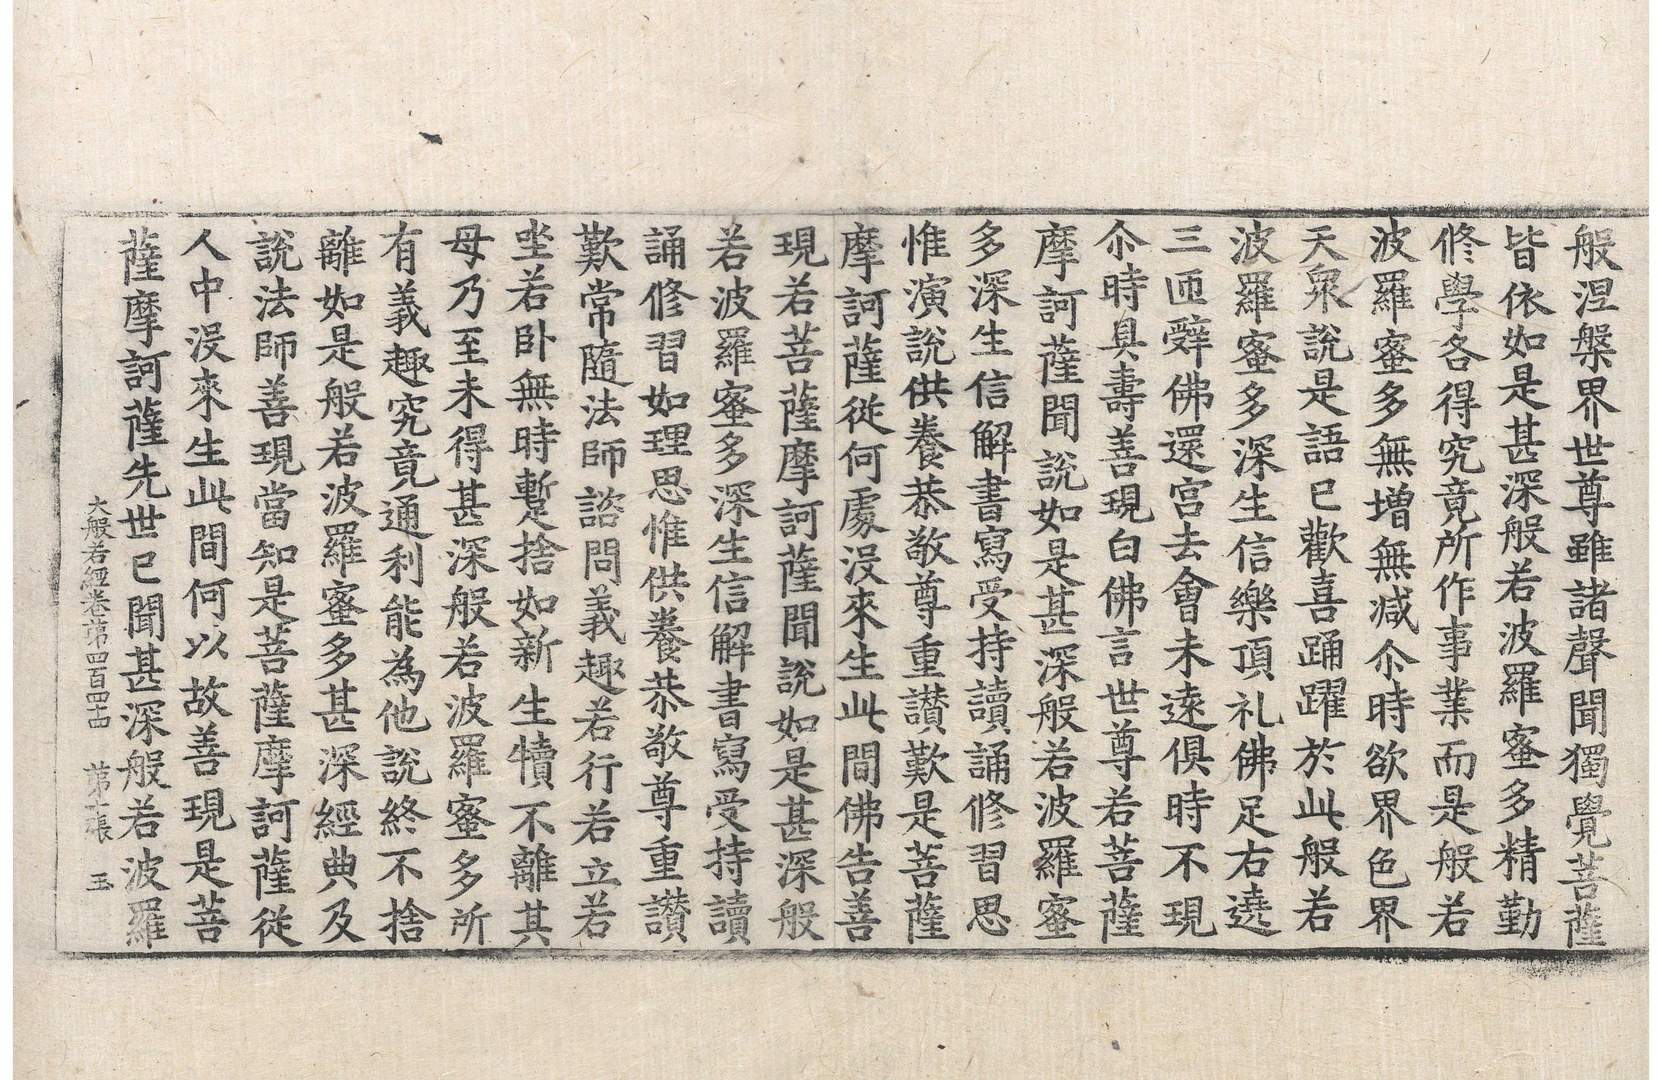 般涅槃界世尊雖諸聲聞獨覺菩薩
皆依如是甚深般若波羅蜜多精勤
修學各得究竟所作事業而是般若
波羅蜜多無增無減尒時欲界色界
天衆說是語已歡喜踊躍於此般若
波羅蜜多深生信樂頂礼佛足右遶
三匝辤佛還宮去會未遠俱時不現
尒時具壽善現白佛言世尊若菩薩
摩訶薩聞說如是甚深般若波羅蜜
多深生信解書寫受持讀誦修習思
惟演說供養恭敬尊重讃歎是菩薩
摩訶薩從何處沒來生此間佛告善
現若菩薩摩訶薩聞說如是甚深般
若波羅蜜多深生信解書寫受持讀
誦修習如理思惟供養恭敬尊重讃
歎常隨法師諮問義趣若行若立若
坐若卧無時暫捨如新生犢不離其
母乃至未得甚深般若波羅蜜多所
有義趣究竟通利能為他說終不捨
離如是般若波羅蜜多甚深經典及
說法師善現當知是菩薩摩訶薩從
人中沒來生此間何以故善現是菩
薩摩訶薩先世已聞甚深般若波羅
大般若經卷第四百四十四 第十張 玉